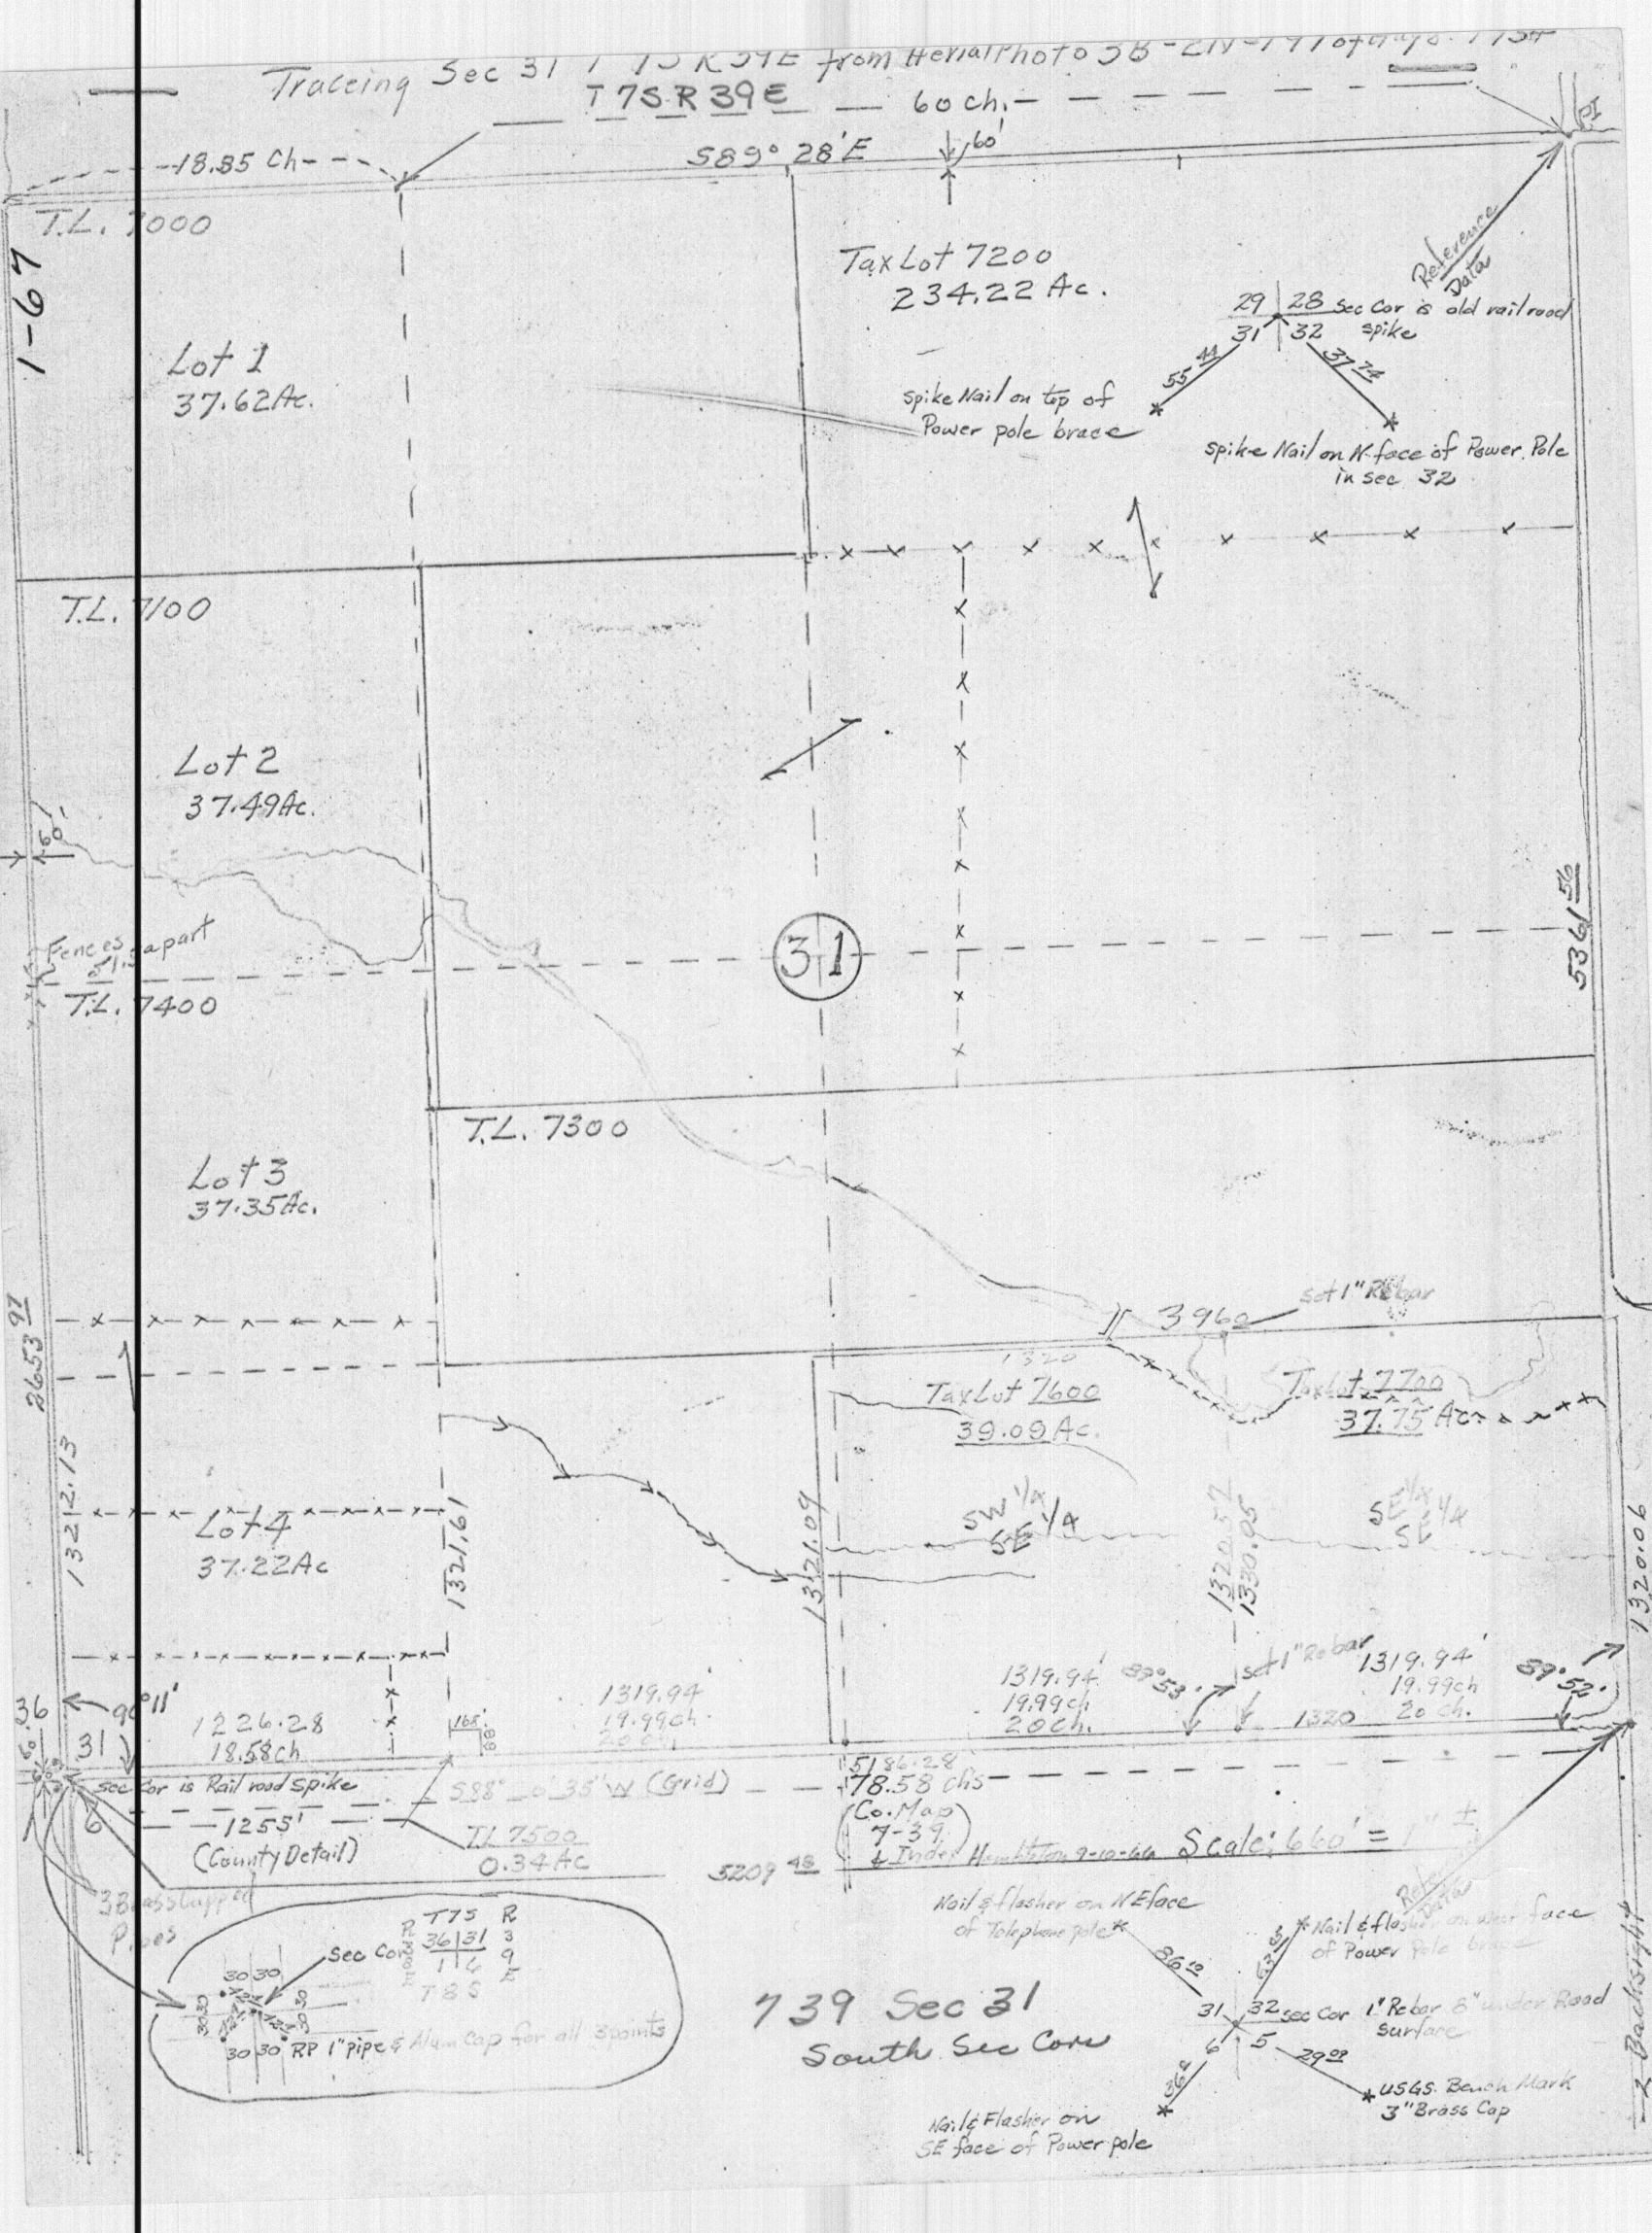 Traceing Sec 31 T 7S R 39E from Aerial Photo 3B-2N-191 of
T 7S. R 39E
60 ch.
18.85 Ch
S89° 28' E
60'
PI
T.L. 7000
1-67
Tax Lot 7200
234.22 Ac.
Reference
Data
29 28 Sec Cor is old railroad
31 32 spike
55 44
37 74
Lot 1
37.62 Ac.
spike Nail on top of
Power pole brace
spike Nail on N-face of Power Pole
in sec 32
T.L. 7100
Lot 2
37.49 Ac.
60'
5361 56
Fences apart
31
T.L. 7400
T.L. 7300
Lot 3
37.35 Ac.
set 1" Rebar
3960
2653 97
1320
Tax Lot 7600
39.09 Ac.
Tax Lot 7700
37.75 Ac.
1312.13
Lot 4
37.22 Ac
1321.61
1321.09
SW 1/4
SE 1/4
1320.57
1330.05
SE 1/4
SE 1/4
1320.06
36
31
90°11'
1226.28
18.58ch
168'
88'
1319.94'
19.99ch.
20 ch
1319.94'
19.99ch
20ch.
89° 53'
set 1" Rebar
1319.94'
19.99ch
20 ch.
1320
89° 52'
60.
sec Cor is Rail road spike
6
1255'
(County Detail)
S88° 0' 35" W (Grid)
TL 7500
0.34 Ac
5186.28'
78.58 chs
(Co. Map
7-39
& Index)
9-10-66
Scale: 660' = 1" ±
5209 48
3 Brass Capped
Pipes
T7S R
36 31 3
1 6 9
T8S E
Sec Cor
30 30
30 30
30 30
30 30 RP 1" pipe & Alum Cap for all 3 points
Nail & flasher on NE face
of Telephone pole
86 10
Nail & flasher on West face
of Power Pole brace
Data
739 Sec 31
South Sec Cors
31 32 Sec Cor 1" Rebar 8" under Road
6 5 surface
29 09
USGS. Bench Mark
3" Brass Cap
Nail & Flasher on
SE face of Power pole
Backsight